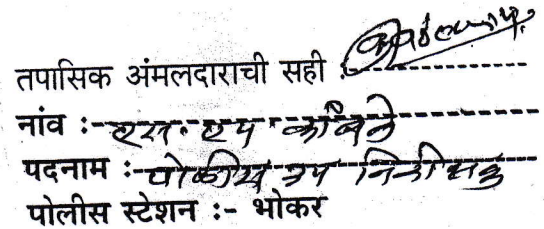 तपासिक अंमलदाराची सही :
नांव :- एस. एच. कांबळे
पदनाम :- पोलीस उप निरीक्षक
पोलीस स्टेशन :- भोकर